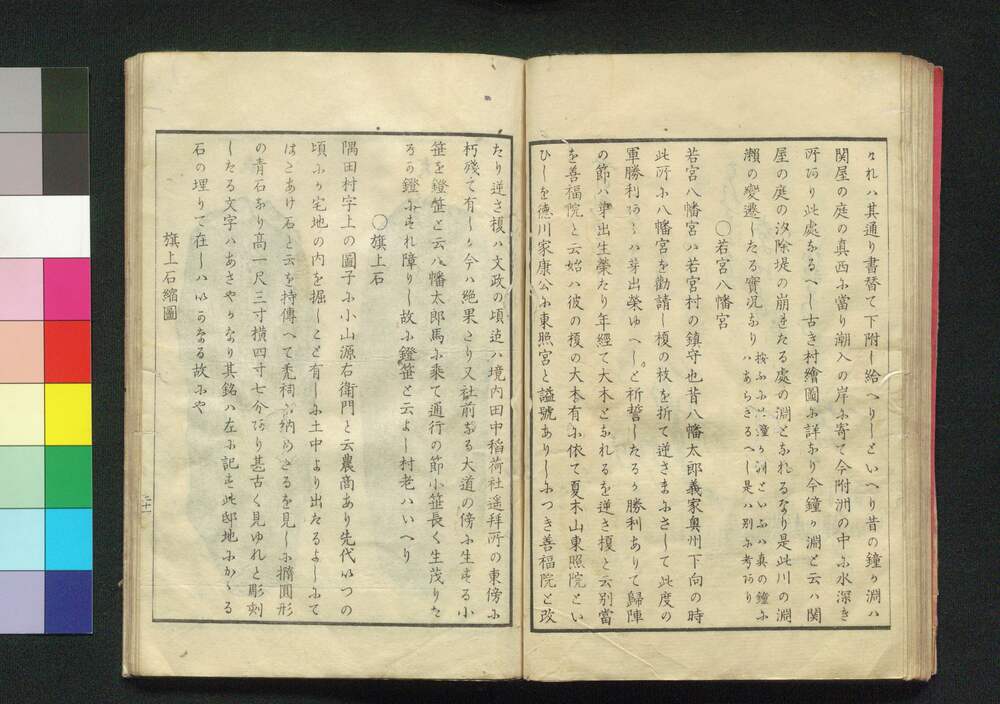 れハ其通り書替て下附し給へりしといへり昔の鐘ヶ淵ハ
関屋の庭の真西に當り潮入の岸に寄て今附洲の中に水深き
所あり此處なるへし古き村繪圖に詳なり今鐘ヶ淵と云ハ関
屋の庭の汐除堤の崩きたる處の淵となれるなり是此川の淵
瀬の変遷したる實况なり
按ふに鐘ヶ淵といふハ真の鐘に
ハあらさるへし是ハ別に考あり
〇若宮八幡宮
若宮八幡宮ハ若宮村の鎮守也昔八幡太郎義家奥州下向の時
此所に八幡宮を勸請し榎の枝を折て逆さまにさして此度の
軍勝利あらハ芽出榮ゆへしと祈誓したるか勝利ありて歸陣
の節ハ芽出生榮たり年經て大木となれるを逆さ榎と云別當
を善福院と云始ハ彼の榎の大木有に依て夏木山東照院とい
ひしを徳川家康公に東照宮と謚號ありしにつき善福院と改
たり逆さ榎ハ文政の頃迠ハ境内田中稲荷社遥拜所の東傍に
朽殘て有しか今ハ絶果たり又社前なる大道の傍に生する小
笹を鐙笹と云八幡太郎馬に乘て通行の節小笹長く生茂りた
るか鐙にすれ障りし故に鐙笹と云よし村老ハいへり
〇旗上石
隅田村字上の圖子に小山源右衛門と云農商あり先代いつの
頃にか宅地の内を掘しこと有しに土中より出たるよしにて
はたあけ石と云を持傳へて禿祠に納めたるを見しに擶圓形
の青石なり高一尺三寸横四寸七分あり甚古く見ゆれと彫刻
したる文字ハあさやかなり其銘ハ左に記す此邸地にかゝる
石の埋りて在しハいかなる故にや
旗上石縮圖
二十一